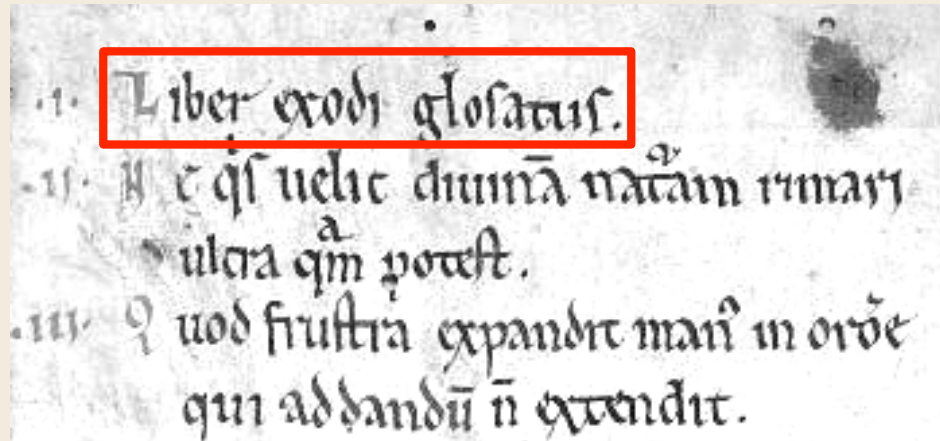 .i. Liber exodi glosatus.
.ii. N e q̇s uelit diuinā nat̄am rimari
ultra qͣm potest.
.iii. Quod frustra expandit man᷒ in or̄ōe
qui ad dandū n̄ extendit.